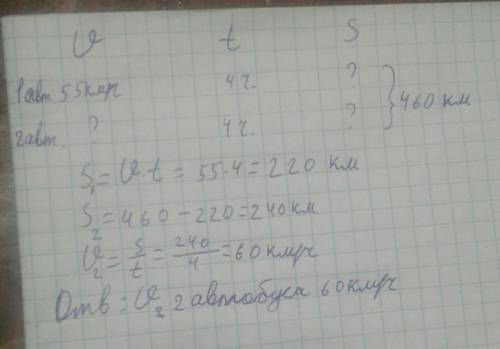 v t S
1авт 55км/ч 4ч. ?
2авт. ? 4ч. ? } 460 км
S₁ = v·t = 55·4 = 220 км
S₂ = 460 - 220 = 240 км
v₂ = S/t = 240/4 = 60 км/ч
Отв: v₂ 2 автобуса 60 км/ч